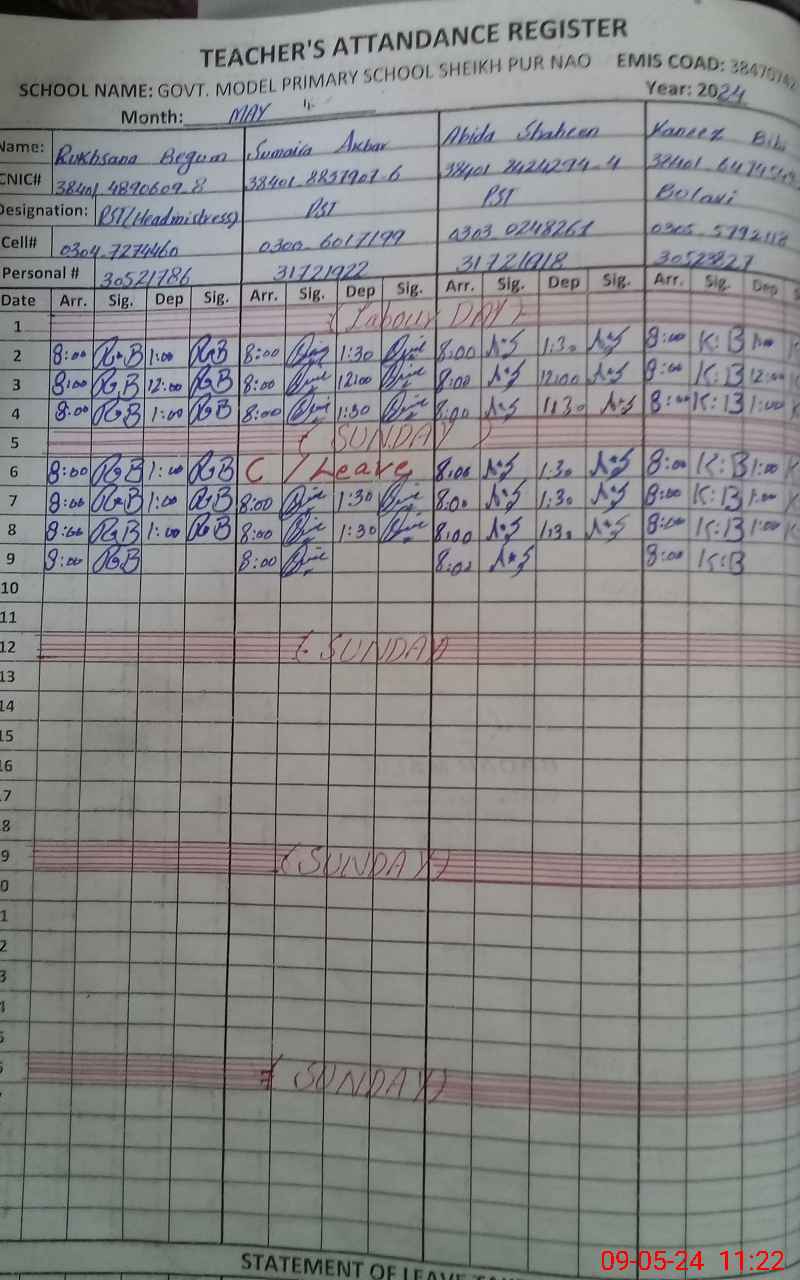 TEACHER'S ATTANDANCE REGISTER
SCHOOL NAME: GOVT. MODEL PRIMARY SCHOOL SHEIKH PUR NAO EMIS COAD:
Month: MAY Year: 2024
Name: Rukhsana Begum Sumaira Akbar Abida Shaheen Kaneez Bibi
CNIC# 38401 4890609 8 38401 8837907 6 38401 2424294 4 38401
Designation: PST(Headmistress) PST PST Bolavi
Cell# 0304 7274460 0300 6017199 0303 0248261 0305
Personal # 30521786 31721922 31721918 30523827
Date Arr. Sig. Dep Sig. Arr. Sig. Dep Sig. Arr. Sig. Dep Sig. Arr. Sig. Dep
1 (Labour DAY)
2 8:00 R.B 1:00 RGB 8:00 1:30 8:00 A*S 1:30 A*S 8:00 K:B 1:00
3 8:00 RGB 12:00 RGB 8:00 12:00 8:00 A*S 12:00 A*S 8:00 K:B 12:00
4 8:00 RGB 1:00 RGB 8:00 1:30 8:00 A*S 1:30 A*S 8:00 K:B 1:00
5 (SUNDAY)
6 8:00 RGB 1:00 RGB C/Leave 8:00 A*S 1:30 A*S 8:00 K:B 1:00
7 8:00 RGB 1:00 RGB 8:00 1:30 8:00 A*S 1:30 A*S 8:00 K:B 1:00
8 8:00 RGB 1:00 RGB 8:00 1:30 8:00 A*S 1:30 A*S 8:00 K:B 1:00
9 8:00 RGB 8:00 8:00 A*S 8:00 K:B
10
11
12 (SUNDAY)
13
14
15
16
17
8
9 (SUNDAY)
0
1
2
3
4
5
(SUNDAY)
STATEMENT OF LEAVE
09-05-24 11:22